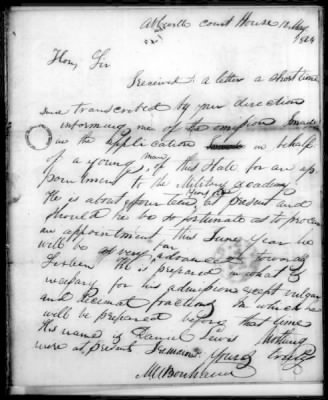 Abbeville Court House 12 May
1824
Hon, Sir
I received a letter a short time
since transcribed by your direction
informing me of the omission made
in the application in behalf
of a young man, of this State for an ap
pointment to the Military academy.
He is about fifteen years at present and
should he be so fortunate as to procure
an appointment this June year he
will be far advanced towards
Sixteen He is prepared in what is
necessary for his admission except vulgar
and decimal fractions in which he
will be prepared before that time
His name is Daniel Lewis Nothing
more at present I remain Yours truly
M. Bonham